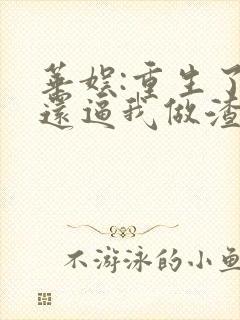 华娱:重生了
还逼我做渣
不游泳的小鱼